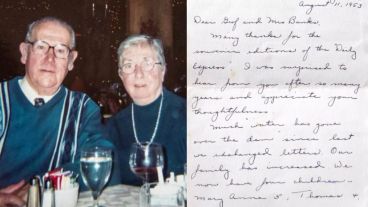 August 11, 1953
Dear Gef and Mrs Banks,
Many thanks for the
souvenir editions of the Daily
Express. I was surprised to
hear from you after so many
years and appreciate your
thoughtfulness.
Much water has gone
over the dam since last
we exchanged letters. Our
family has increased. We
now have four children —
Mary Anne 5, Thomas 4